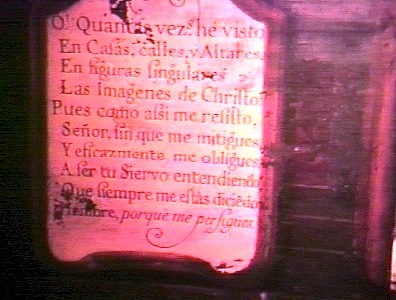 O! Quantas vez.s hé visto
En Casas, calles, y Altares,
En figuras singulares
Las Imagenes de Christo:
Pues como assi me resisto,
Señor, sin que me mitigues,
Y eficazmente me obligues
A ser tu Siervo entendiendo
Que siempre me estàs diciẽdo
Hombre, porque me persigues.